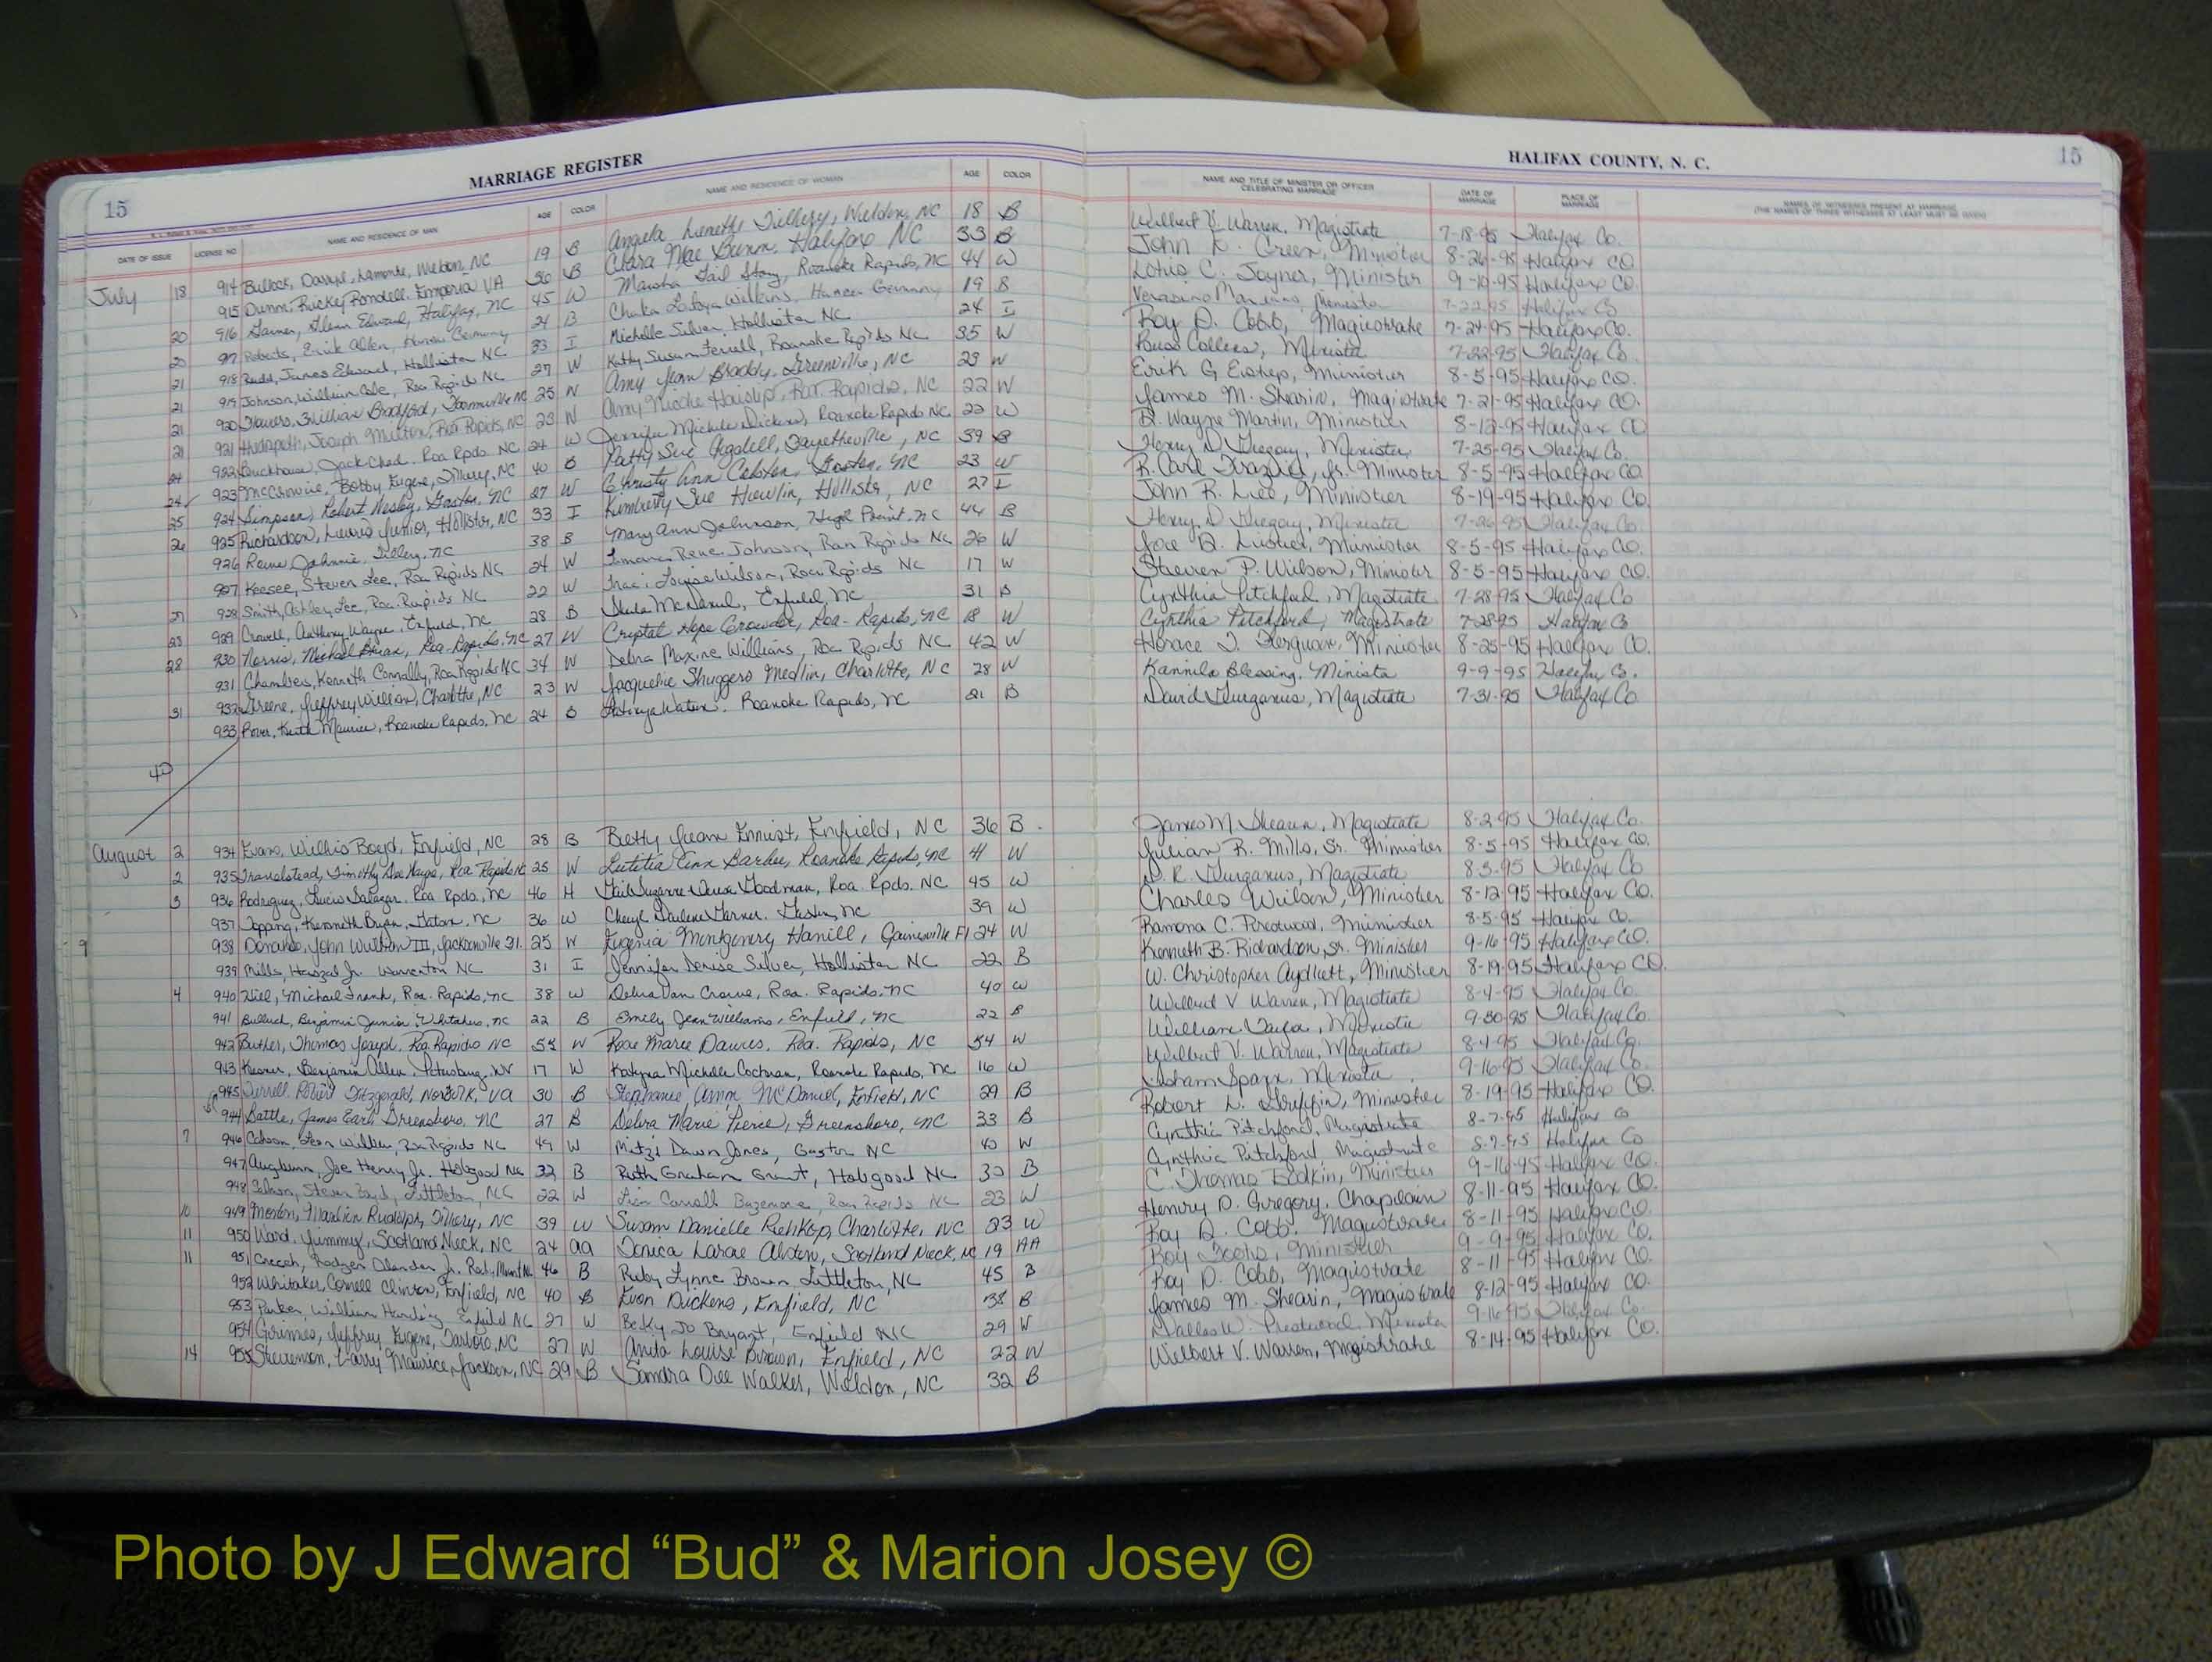 MARRIAGE REGISTER
15
DATE OF ISSUE LICENSE NO. NAME AND RESIDENCE OF MAN AGE COLOR NAME AND RESIDENCE OF WOMAN AGE COLOR
HALIFAX COUNTY, N. C.
15
NAME AND TITLE OF MINISTER OR OFFICER CELEBRATING MARRIAGE DATE OF MARRIAGE PLACE OF MARRIAGE NAMES OF WITNESSES PRESENT AT MARRIAGE (THE NAMES OF THREE WITNESSES AT LEAST MUST BE GIVEN)
July 18 914 Bullock, Darryl, Lamonte, Weldon, NC 19 B Angela Lenette Tillery, Weldon, NC 18 B Wilbert V. Warren, Magistrate 7-18-95 Halifax Co.
915 Dunn, Ricky Rondell, Emporia VA 36 B Clara Mae Dunn, Halifax NC 33 B John D. Green, Minister 8-26-95 Halifax CO
20 916 Garner, Glenn Edward, Halifax, NC 45 W Marsha Gail Stay, Roanoke Rapids, NC 44 W C. Joyner, Minister Halifax CO.
20 917 Roberts, Erick Allen, Germany 24 B Latoya Wilkins, Germany 19 B Minister 7-22-95 Halifax Co
21 918 Rudd, James Edward, Hollister NC 33 I Michelle Silver, Hollister NC 24 I Roy D. Cobb, Magistrate 7-24-95 Halifax Co.
21 919 Johnson, William Cole, Roa Rapids NC 27 W Kathy Susan Ferrell, Roanoke Rapids NC 35 W Russ Collins, Minister 7-22-95 Halifax Co
21 920 William Bradford, Farmville NC 25 W Amy Jean Braddy, Greenville, NC 23 W Erik G Estep, Minister 8-5-95 Halifax CO.
21 921 Hudspeth, Joseph Milton, Roa Rapids, NC 23 W Amy Nicole Haislip, Roa. Rapids, NC 22 W James M. Shearin, Magistrate 7-21-95 Halifax CO.
24 922 Buckhouse, Jack Chad, Roa Rpds. NC 24 W Jennifer Michele Dickens, Roanoke Rapids NC 22 W B. Wayne Martin, Minister 8-12-95 Halifax CO
24 923 McCrowie, Bobby Eugene, Tillery, NC 40 B Patty Sue Fayetteville, NC 39 B Henry D Gregory, Minister 7-25-95 Halifax Co.
25 924 Simpson, Robert Wesley, Gaston, NC 27 W Christy Ann Gaston, NC 23 W R. Carl Frazier, Jr. Minister 8-5-95 Halifax CO.
26 925 Richardson, Lewis Junior, Hollister, NC 33 I Kimberly Sue Hewlin, Hollister, NC 27 I John R. Lee, Minister 8-19-95 Halifax Co.
926 Johnnie, Tillery, NC 38 B Mary Ann Johnson, High Point, NC 44 B Henry D Gregory, Minister 7-26-95 Halifax Co
927 Keesee, Steven Lee, Roa Rapids NC 24 W Rene Johnson, Roa Rapids NC 26 W Joe B. Minister 8-5-95 Halifax CO.
27 928 Smith, Ashley Lee, Roa. Rapids NC 22 W Traci Louise Wilson, Roa Rapids NC 17 W Steven P. Wilson, Minister 8-5-95 Halifax CO.
28 929 Crowell, Anthony Wayne, Enfield, NC 28 B Enfield NC 31 B Cynthia Pitchford, Magistrate 7-28-95 Halifax Co
28 930 Norris, Michael Brian, Roa. Rapids, NC 27 W Crystal Hope Crowder, Roa. Rapids, NC 18 W Cynthia Pitchford, Magistrate 7-28-95 Halifax Co
931 Chambers, Kenneth Connally, Roa Rapids NC 34 W Debra Maxine Williams, Roa Rapids NC 42 W Horace T. Ferguson, Minister 8-25-95 Halifax CO.
932 Greene, Jeffrey William, Charlotte, NC 23 W Jacquelie Shuggers Medlin, Charlotte, NC 28 W Blessing, Minister 9-9-95 Halifax Co.
31 933 Keith Maurice, Roanoke Rapids, NC 24 B Roanoke Rapids, NC 21 B David Gurganus, Magistrate 7-31-95 Halifax Co
40
August 2 934 Evans, Willie Boyd, Enfield, NC 28 B Betty Jean Enfield, NC 36 B James M. Shearin, Magistrate 8-2-95 Halifax Co.
2 935 Roa. Rapids NC 25 W Letitia Ann Roanoke Rapids, NC 41 W Julian R. Mills, Sr. Minister 8-5-95 Halifax CO.
3 936 Rodriguez, Lucio Salazar, Roa Rpds. NC 46 H Gail Suzanne Goodman, Roa. Rpds. NC 45 W D. R. Gurganus, Magistrate 8-3-95 Halifax Co
937 Topping, Kenneth Bryan, Gaston, NC 36 W Cheryl Darlene Garner, Gaston, NC 39 W Charles Wilson, Minister 8-12-95 Halifax CO.
938 Donahoe, John William III, Jacksonville Fl. 25 W Eugenia Montgomery Hamill, Gainesville Fl 24 W Ramona C. Prestwood, Minister 8-5-95 Halifax Co.
939 Mills, Jr. Warrenton NC 31 I Jennifer Denise Silver, Hollister NC 22 B Kenneth B. Richardson, Sr. Minister 9-16-95 Halifax CO
4 940 Michael Frank, Roa. Rapids, NC 38 W Debra Van Crowe, Roa. Rapids, NC 40 W W. Christopher Aydlett, Minister 8-19-95 Halifax CO.
941 Bullock, Benjamin Junior, Whitakers, NC 22 B Emily Jean Williams, Enfield, NC 22 B Wilbert V Warren, Magistrate 8-4-95 Halifax Co.
942 Butler, Thomas Joseph, Roa. Rapids NC W Rose Marie Dawes, Roa. Rapids, NC 54 W William Minister 9-30-95 Halifax Co
943 Benjamin Allen 17 W Katyna Michelle Cochran, Roanoke Rapids, NC 16 W Wilbert V. Warren, Magistrate 8-4-95 Halifax Co.
945 Terrell, Robert Fitzgerald, Norfolk, VA 30 B Stephanie Ann McDaniel, Enfield, NC 29 B Minister 9-16-95 Halifax Co
944 Battle, James Earl, Greensboro, NC 27 B Debra Marie Pierce, Greensboro, NC 33 B Robert L. Griffin, Minister 8-19-95 Halifax CO.
7 946 Roa Rapids NC 49 W Mitzi Dawn Jones, Gaston NC 40 W Cynthia Pitchford, Magistrate 8-7-95 Halifax Co
947 Joe Henry Jr. Hobgood NC 32 B Ruth Graham Grant, Hobgood NC 30 B Cynthia Pitchford Magistrate 8-7-95 Halifax Co
948 Steven Boyd, Littleton, NC 22 W Lisa Carroll Bazemore, Roa Rapids NC 23 W C. Thomas Bodkin, Minister 9-16-95 Halifax CO.
10 949 Rudolph, Tillery, NC 39 W Susan Danielle Charlotte, NC 23 W Henry D. Gregory, Chaplain 8-11-95 Halifax CO.
11 950 Ward, Jimmy, Scotland Neck, NC 24 AA Scotland Neck, NC 19 AA Roy D. Cobb, Magistrate 8-11-95 Halifax CO.
11 951 Jr. Rocky Mount NC 46 B Ruby Lynne Brown Littleton, NC 45 B Roy Minister 9-9-95 Halifax CO.
952 Whitaker, Cornell Clinton, Enfield, NC 40 B Evon Dickens, Enfield, NC 38 B Roy D. Cobb, Magistrate 8-11-95 Halifax CO.
953 Parker, William Harding Enfield NC 27 W Becky Jo Bryant, Enfield NC 29 W James M. Shearin, Magistrate 8-12-95 Halifax CO.
954 Grimes, Jeffrey Eugene, Tarboro, NC 27 W Anita Louise Brown, Enfield, NC 22 W Dallas W. Prestwood, Minister 9-16-95 Halifax Co.
14 955 Stevenson, Larry Maurice, Jackson, NC 29 B Sandra Dee Walker, Weldon, NC 32 B Wilbert V. Warren, Magistrate 8-14-95 Halifax Co.
Photo by J Edward “Bud” & Marion Josey ©